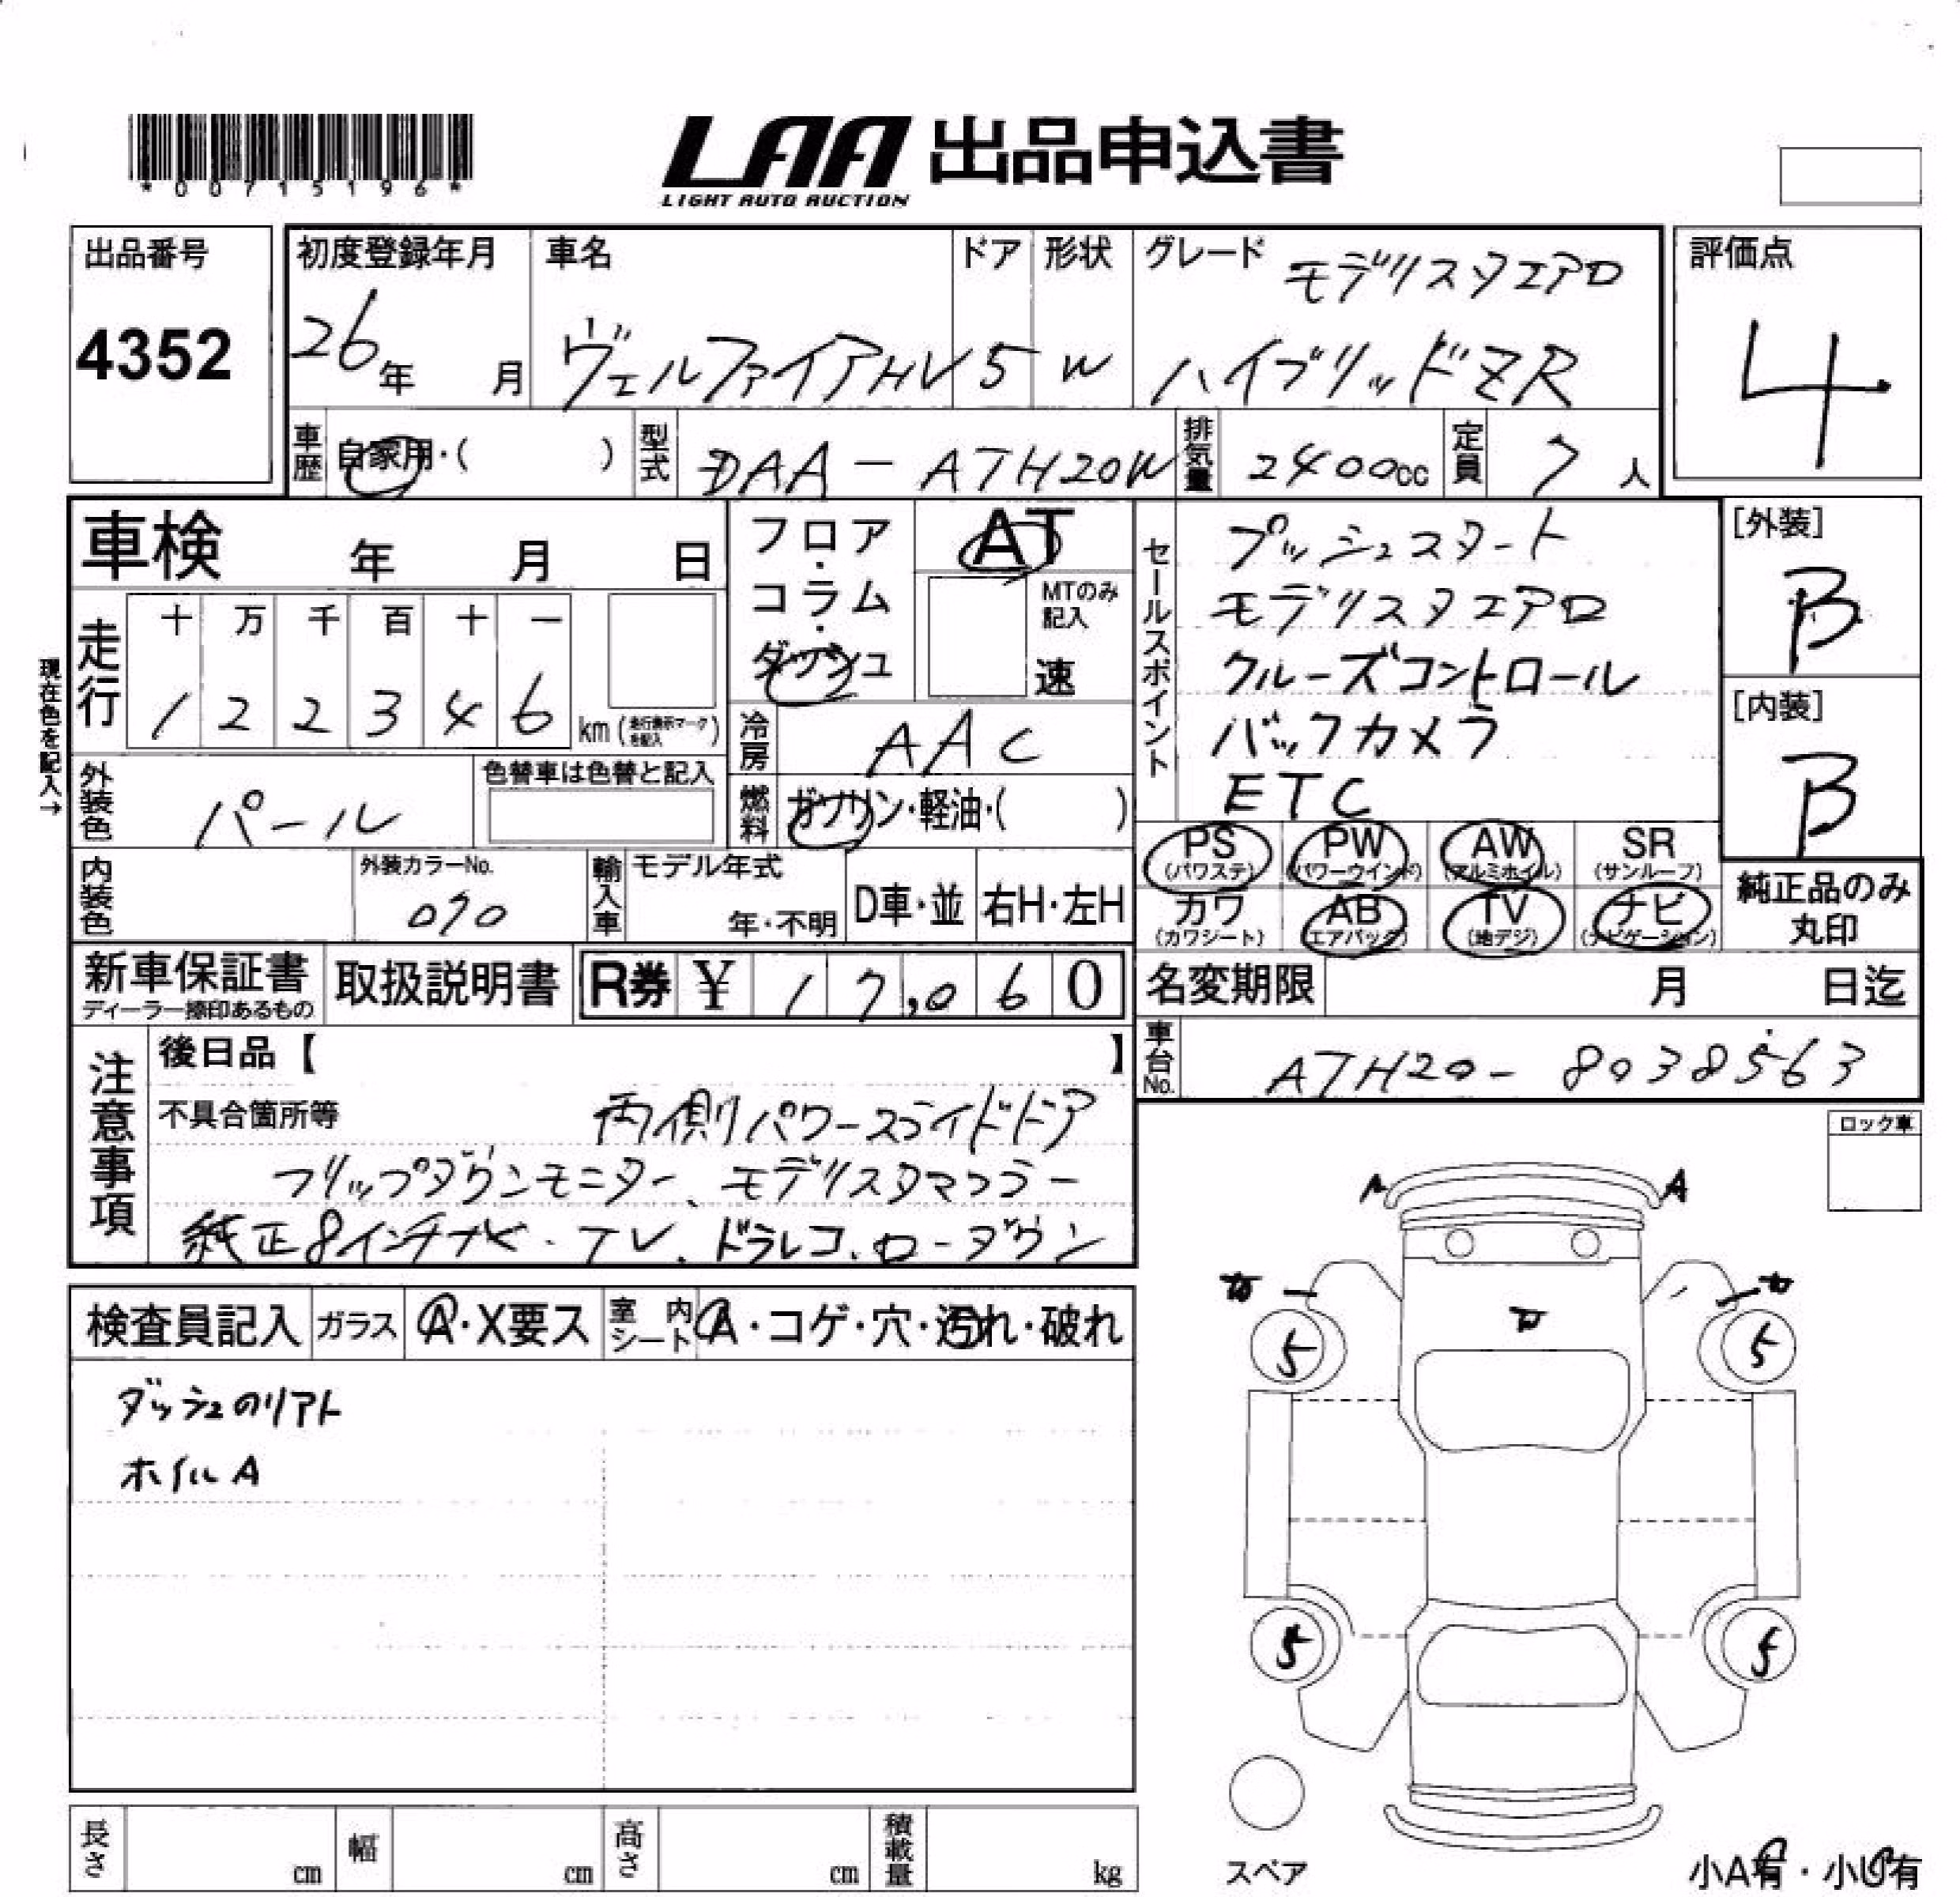 *00715196*
LAA 出品申込書
LIGHT AUTO AUCTION
出品番号
4352
初度登録年月
26年 月
車名
ヴェルファイアHV
ドア
5
形状
W
グレード モデリスタエアロ
ハイブリッドZR
評価点
4
車歴 自家用・( )
型式 DAA-ATH20W
排気量 2400cc
定員 7人
車検 年 月 日
フロア・コラム・ダッシュ
AT
MTのみ記入
速
セールスポイント
プッシュスタート
モデリスタエアロ
クルーズコントロール
バックカメラ
ETC
[外装]
B
[内装]
B
現在色を記入→
走行
十 万 千 百 十 一
1 2 2 3 4 6 km(走行表示マークを記入)
冷房 AAC
外装色 パール
色替車は色替と記入
燃料 ガソリン・軽油・( )
PS (パワステ)
PW (パワーウインド)
AW (アルミホイル)
SR (サンルーフ)
カワ (カワシート)
AB (エアバック)
TV (地デジ)
ナビ (ナビゲーション)
純正品のみ丸印
内装色
外装カラーNo.
070
輸入車
モデル年式
年・不明
D車・並
右H・左H
新車保証書
ディーラー捺印あるもの
取扱説明書
R券 ¥ 17,060
名変期限 月 日迄
車台No. ATH20-8038563
注意事項
後日品【 】
不具合箇所等 両側パワースライドドア
フリップダウンモニター、モデリスタマフラー
純正8インチナビ・TV、ドラレコ、ローダウン
ロック車
検査員記入
ガラス A・X要ス
室内シート A・コゲ・穴・汚れ・破れ
ダッシュのリアト
ホイルA
A
A
5
5
5
5
スペア
小A有・小U有
長さ cm
幅 cm
高さ cm
積載量 kg